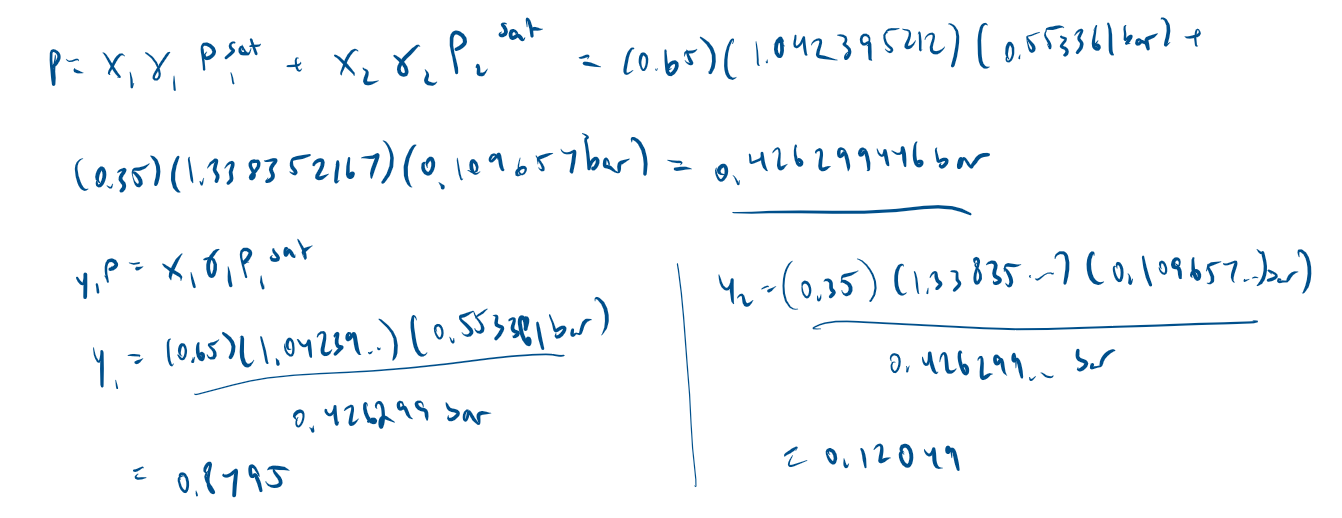 P = x₁ γ₁ P₁ˢᵃᵗ + x₂ γ₂ P₂ˢᵃᵗ = (0.65)(1.042395212)(0.553361 bar) +
(0.35)(1.338352167)(0.109657 bar) = 0.426299446 bar
y₁P = x₁γ₁P₁ˢᵃᵗ
y₁ = (0.65)(1.04239..)(0.553361 bar)
0.426299 bar
= 0.8795
y₂ = (0.35)(1.33835...)(0.109657..bar)
0.426299... bar
= 0.12049